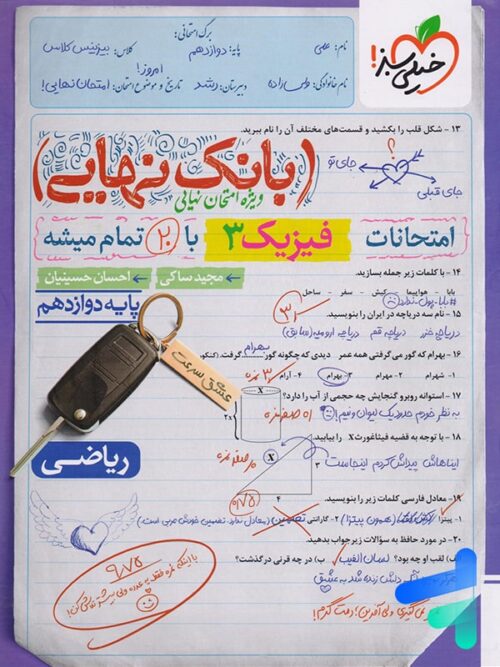 برگ امتحانی:
نام: علی
پایه: دوازدهم
کلاس: بیزینس کلاس
نام خانوادگی:
دبیرستان: رشد
تاریخ و موضوع امتحان: امروز! امتحان نهایی!
خیلی سبز!
۱۳ - شکل قلب را بکشید و قسمت‌های مختلف آن را نام ببرید.
؟
جای تو
جای قبلی
(بانک نهایی)
ویژه امتحان نهایی
امتحانات فیزیک ۳ با ۲۰ تمام میشه
مجید ساکی
احسان حسینیان
پایه دوازدهم
۱۴ - با کلمات زیر جمله بسازید.
بابا - هواپیما - کیش - سفر - ساحل
#بابا_پول_نداره
۱۵ - نام سه دریاچه در ایران را بنویسید.
دریاچه خزر دریاچه قم دریاچه ارومیه (سابق)
۱۶ - بهرام که گور می‌گرفتی همه عمر دیدی که چگونه گور بهرام گرفت.
۱- شهرام ۲- مهرام ۳- بهرام ۴- آرام
۱۷ - استوانه روبرو گنجایش چه حجمی از آب را دارد؟
به نظر خودم حدود یک لیوان و نیم!
X
2x
۱۸ - با توجه به قضیه فیثاغورث X را بیابید.
ایناهاش پیداش کردم اینجاست
X
۳
۴
عشق سرعت
ریاضی
۱۹ - معادل فارسی کلمات زیر را بنویسید.
۱- پیتزا (همون پیتزا) ۲- گارانتی تضمین (معادل ندارد. تضمین خودش عربی است)
۲۰ - در مورد حافظ به سؤالات زیر جواب بدهید.
) لقب او چه بود؟ لسان الغیب ب) در چه قرنی درگذشت؟
هرگز نمیرد آنکه دلش زنده شد به عشق
۹/۷۵